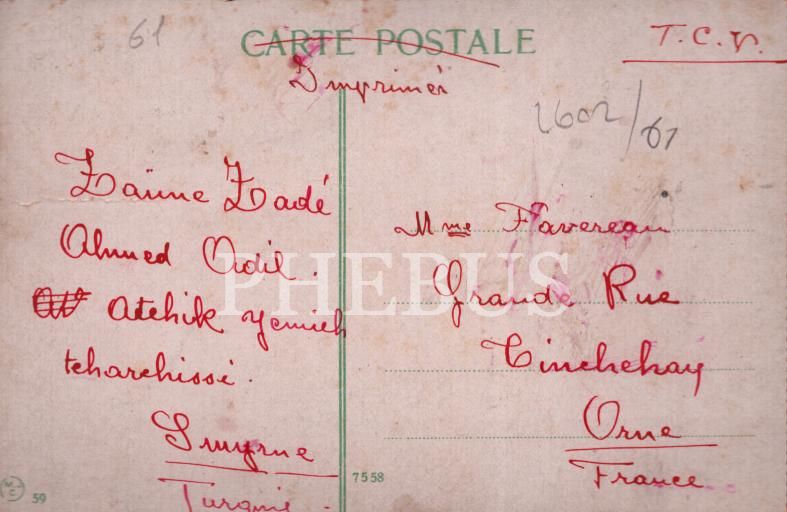 61
CARTE POSTALE
T.C.V.
Imprimés
2602/61
Zaïme Zadé
Ahmed Adil.
Atchik yemich
tcharchissi.
Smyrne
Turquie.
Mme Favereau
Grande Rue
Tinchebray
Orne
France
PHEBUS
7558
M C
59